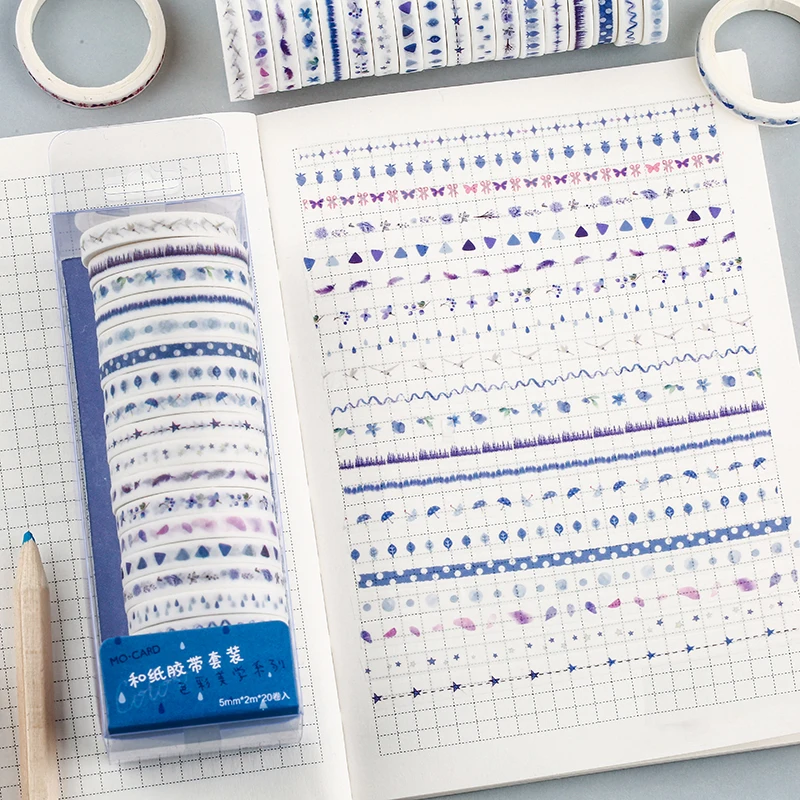 MO·CARD
和纸胶带套装
色彩美学系列
5mm*2m*20卷入